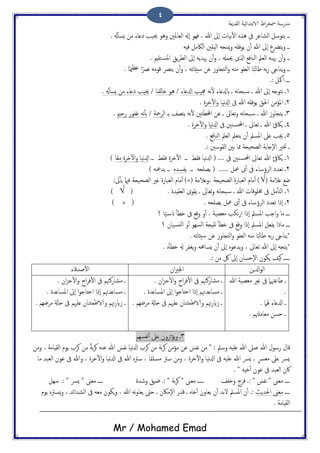 ٤
مدرسة سمتراط الابتدائية القديمة
ــ يتوسل الشاعر في هذه الأبيات إلى الله ، فهو إله العالمين وهو مجيب دعاء من يسأله .
ــ ويتضرع إلى الله أن يوفقه ويمنحه اليقين الكامل فيه
ــ وأن يهبه العلم النافع الذى يجمله ، وأن يهديه إلى الطريق المستقيم .
ــ ويناجى ربه طالبًا العفو منه والتجاوز عن سيئاته ، وأن ينصر قومه نصرًا عظيمًا .
ــ أكمل :ـ
١ـ نتوجه إلى الله ـ سبحانه ـ بالدعاء لأنه مجيب الدعاء / هو خالقنا / يجيب دعاء من يسأله .
٢ـ المؤمن الحق يوفقه الله في الدنيا والآخرة .
٣ـ يتجاوز الله ـ سبحانه وتعالى ـ عن المخطئين لأنه يتصف بـ الرحمة / بأنه غفور رحيم .
٤ـ يكافئ الله ـ تعالى ـ المحسنين في الدنيا والآخرة .
٥ـ يجب على المسلم أن يتعلم العلم النافع .
ــ تخير الإجابة الصحيحة مما بين القوسين :ـ
١ـ يكافئ الله تعالى المحسنين في .... ( الدنيا فقط ــ الآخرة فقط ــ الدنيا والآخرة معًا )
٢ـ تعدد الرؤساء في أى عمل ...... ( يصلحه ــ يفسده ــ يدعمه )
ضع علامة (√) أمام العبارة الصحيحة وعلامة (×) أمام العبارة غير الصحيحة فيما يأتى:
١ـ التأمل في مخلوقات الله ـ سبحانه وتعالى ـ يقوى العقيدة . ( √ )
٢ـ إذا تعدد الرؤساء في أى عمل يصلحه . ( × )
ــ ما واجب المسلم إذا ارتكب معصية ، أو وقع في خطأ ناسيًا ؟
ــ ماذا يفعل المسلم إذا وقع في خطأ نتيجة السهو أو النسيان ؟
ـ يناجى ربه طالبًا منه العفو والتجاوز عن سيئاته .
ـ يتجه إلى الله تعالى ، ويدعوه إلى أن يسامحه ويغفر له خطأه .
ــ كيف يكون الإحسان إلى كل من :ـ
الوالدين الجيران الأصدقاء
ـ طاعتهما في غير معصية الله . ـ مشاركتهم في الأفراح والأحزان . ـ مشاركتهم في الأفراح والأحزان .
ـ مساعدتهم إذا احتاجوا إلى المساعدة . ـ مساعدتهم إذا احتاجوا إلى المساعدة .
ـ الدعاء لهما . ـ زيارتهم والاطمئنان عليهم في حالة مرضهم . ـ زيارتهم والاطمئنان عليهم في حالة مرضهم .
ـ حسن معاملتهم .
٣ـ ويؤثرون على أنفسهم
قال رسول الله صلى الله عليه وسلم : " من نفس عن مؤمن كربة من كرب الدنيا نفس الله عنه كربة من كرب يوم القيامة ، ومن
يسر على معسر ، يسر الله عليه في الدنيا والآخرة ، ومن ستر مسلمًا ، ستره الله في الدنيا والآخرة ، والله في عون العبد ما
كان العبد في عون أخيه " .
ــ معنى " نفس " :ـ فرج وخفف ــ معنى " كربة " :ـ ضيق وشدة ــ معنى " يسر " :ـ سهل
ــ معنى الحديث :ـ أن المسلم لابد أن يعاون أخاه ـ قدر الإمكان ـ حتى يعاونه الله ، ويكون معه في الشدائد ، ويستره يوم
القيامة .
Mr / Mohamed Emad